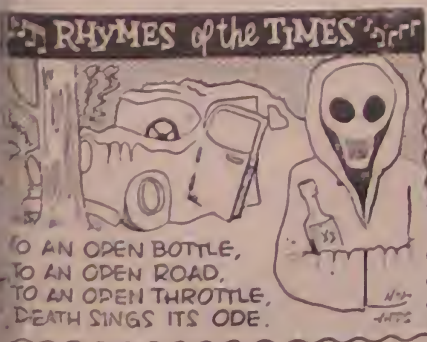 RHYMES of the TIMES
TO AN OPEN BOTTLE,
TO AN OPEN ROAD,
TO AN OPEN THROTTLE,
DEATH SINGS ITS ODE.